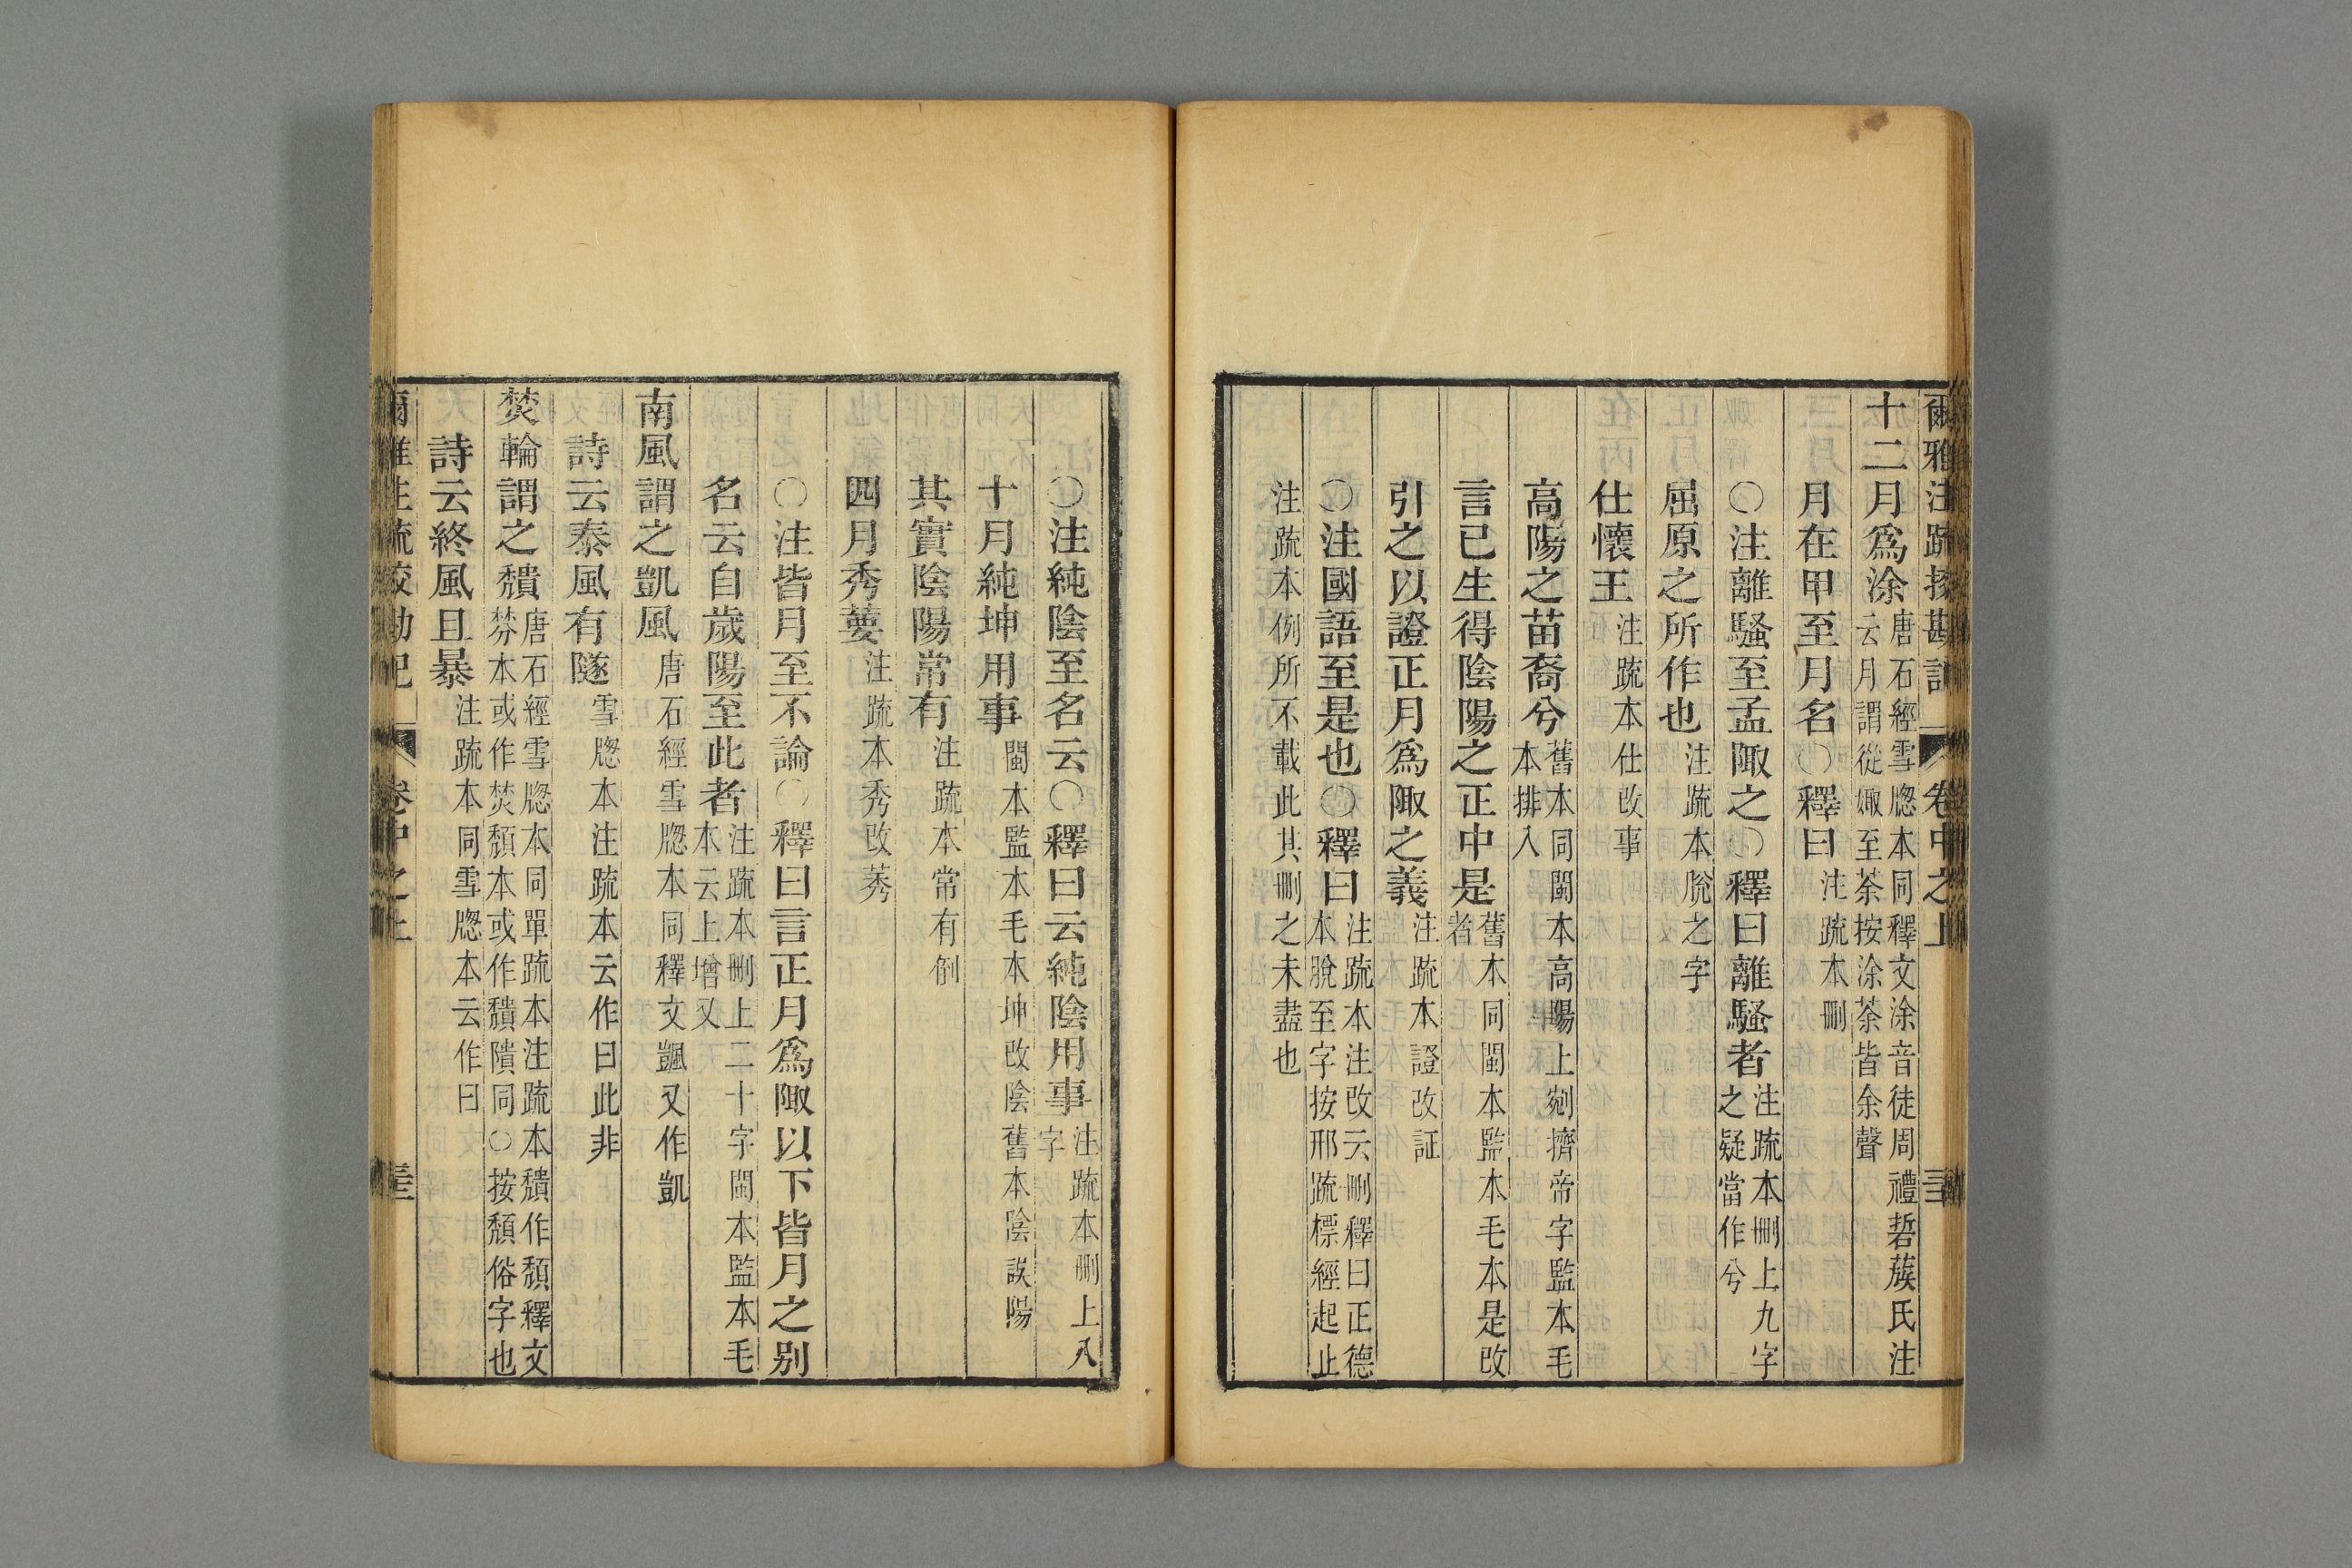 爾雅注疏挍勘記 卷中之上
十二月爲涂唐石經雪牕本同釋文涂音徒周禮硩蔟氏注云月謂從娵至荼按涂荼皆余聲
月在甲至月名○釋曰注疏本刪
○注離騷至孟陬之○釋曰離騷者注疏本刪上九字之疑當作兮
屈原之所作也注疏本脫之字
仕懷王注疏本仕改事
高陽之苗裔兮舊本同閩本高陽上剜擠帝字監本毛本排入
言已生得陰陽之正中是舊本同閩本監本毛本是改者
引之以證正月爲陬之義注疏本證改証
○注國語至是也○釋曰注疏本注改云刪釋曰正德本脫至字按邢疏標經起止
注疏本例所不載此其刪之未盡也
○注純陰至名云○釋曰云純陰用事注疏本刪上八字
十月純坤用事閩本監本毛本坤改陰舊本陰誤陽
其實陰陽常有注疏本常有倒
四月秀葽注疏本秀改莠
○注皆月至不論○釋曰言正月爲陬以下皆月之別
名云自歲陽至此者注疏本刪上二十字閩本監本毛本云上增又
南風謂之凱風唐石經雪牕本同釋文颽又作凱
詩云泰風有隧雪牕本注疏本云作曰此非
焚輪謂之穨唐石經雪牕本同單疏本注疏本穨作頹釋文棼本或作焚頹本或作穨隤同○按頹俗字也
詩云終風且暴注疏本同雪牕本云作曰
爾雅注疏校勘記 卷中之上